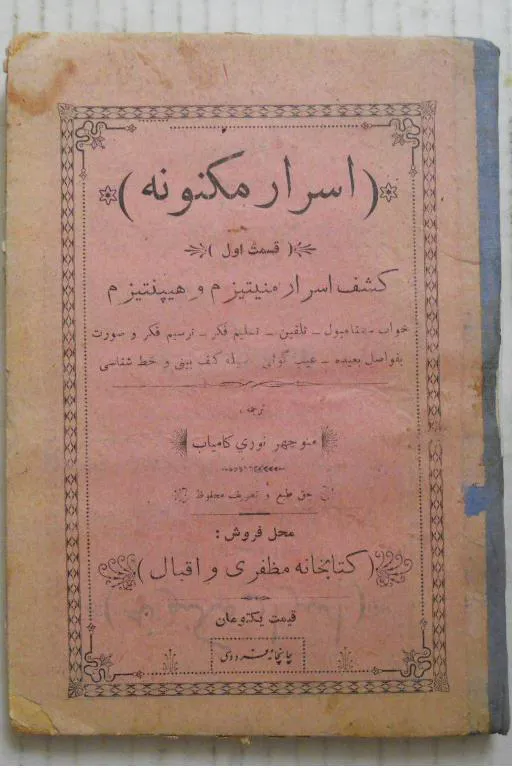 ( اسرار مکنونه )
( قسمت اول )
کشف اسرار منیتیزم و هیپنتیزم
خواب مقناطیسی ـ تلقین ـ تسلیم فکر ـ ترسیم فکر و صورت
بفواصل بعیده ـ غیب گوئی کف بینی و خط شناسی
ترجمه
منوچهر نوری کامیاب
حق طبع و تعریف محفوظ
محل فروش :
( کتابخانه مظفری و اقبال )
قیمت یکتومان
چاپخانه فردوسی